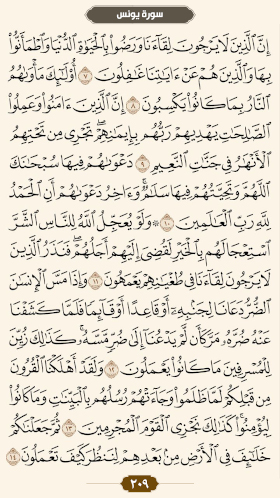 سورة يونس
إِنَّ ٱلَّذِينَ لَا يَرْجُونَ لِقَآءَنَا وَرَضُوا۟ بِٱلْحَيَوٰةِ ٱلدُّنْيَا وَٱطْمَأَنُّوا۟
بِهَا وَٱلَّذِينَ هُمْ عَنْ ءَايَـٰتِنَا غَـٰفِلُونَ ٧ أُو۟لَـٰٓئِكَ مَأْوَىٰهُمُ
ٱلنَّارُ بِمَا كَانُوا۟ يَكْسِبُونَ ٨ إِنَّ ٱلَّذِينَ ءَامَنُوا۟ وَعَمِلُوا۟
ٱلصَّـٰلِحَـٰتِ يَهْدِيهِمْ رَبُّهُم بِإِيمَـٰنِهِمْ ۖ تَجْرِى مِن تَحْتِهِمُ
ٱلْأَنْهَـٰرُ فِى جَنَّـٰتِ ٱلنَّعِيمِ ٩ دَعْوَىٰهُمْ فِيهَا سُبْحَـٰنَكَ
ٱللَّهُمَّ وَتَحِيَّتُهُمْ فِيهَا سَلَـٰمٌ ۚ وَءَاخِرُ دَعْوَىٰهُمْ أَنِ ٱلْحَمْدُ
لِلَّهِ رَبِّ ٱلْعَـٰلَمِينَ ١٠ ۞ وَلَوْ يُعَجِّلُ ٱللَّهُ لِلنَّاسِ ٱلشَّرَّ
ٱسْتِعْجَالَهُم بِٱلْخَيْرِ لَقُضِىَ إِلَيْهِمْ أَجَلُهُمْ ۖ فَنَذَرُ ٱلَّذِينَ
لَا يَرْجُونَ لِقَآءَنَا فِى طُغْيَـٰنِهِمْ يَعْمَهُونَ ١١ وَإِذَا مَسَّ ٱلْإِنسَـٰنَ
ٱلضُّرُّ دَعَانَا لِجَنۢبِهِۦٓ أَوْ قَاعِدًا أَوْ قَآئِمًا فَلَمَّا كَشَفْنَا
عَنْهُ ضُرَّهُۥ مَرَّ كَأَن لَّمْ يَدْعُنَآ إِلَىٰ ضُرٍّ مَّسَّهُۥ ۚ كَذَٰلِكَ زُيِّنَ
لِلْمُسْرِفِينَ مَا كَانُوا۟ يَعْمَلُونَ ١٢ وَلَقَدْ أَهْلَكْنَا ٱلْقُرُونَ
مِن قَبْلِكُمْ لَمَّا ظَلَمُوا۟ ۙ وَجَآءَتْهُمْ رُسُلُهُم بِٱلْبَيِّنَـٰتِ وَمَا كَانُوا۟
لِيُؤْمِنُوا۟ ۚ كَذَٰلِكَ نَجْزِى ٱلْقَوْمَ ٱلْمُجْرِمِينَ ١٣ ثُمَّ جَعَلْنَـٰكُمْ
خَلَـٰٓئِفَ فِى ٱلْأَرْضِ مِنۢ بَعْدِهِمْ لِنَنظُرَ كَيْفَ تَعْمَلُونَ ١٤
٢٠٩